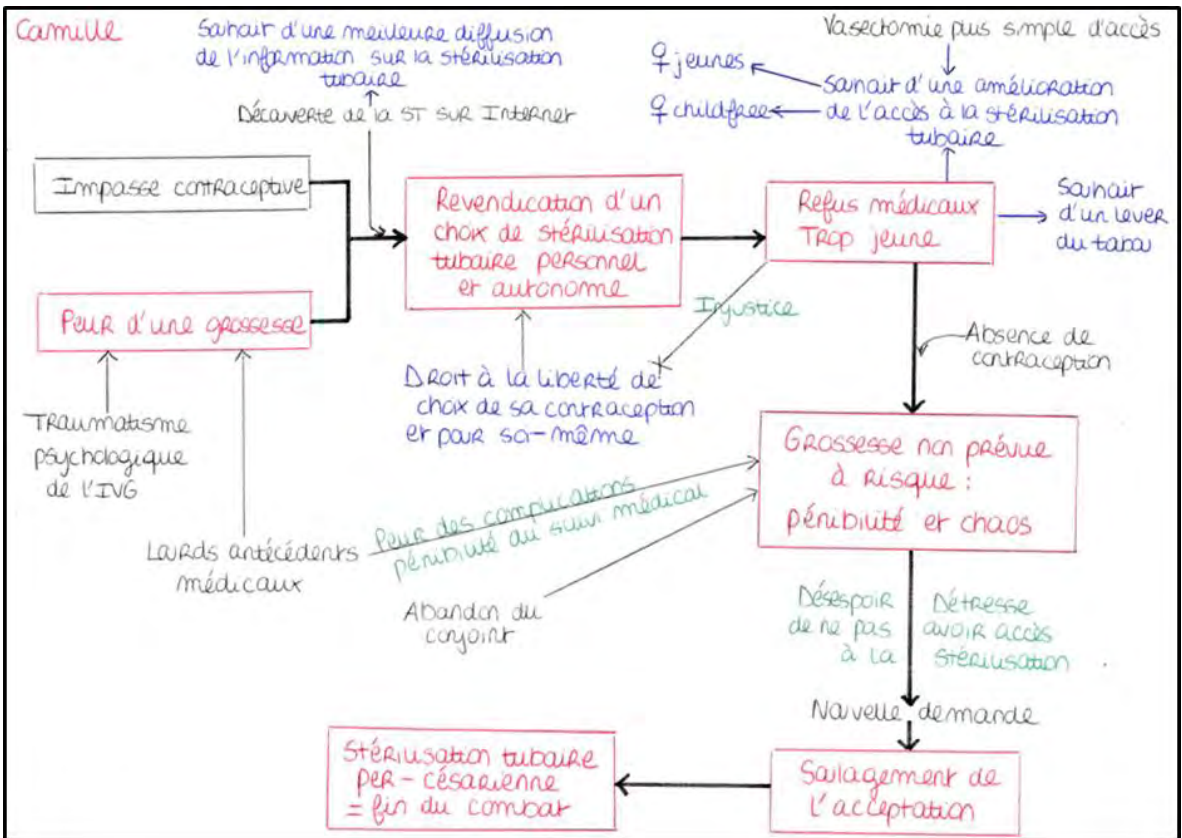 Camille
Souhait d'une meilleure diffusion
de l'information sur la stérilisation
tubaire
Découverte de la ST sur Internet
Vasectomie plus simple d'accès
♀ jeunes
♀ childfree
Souhait d'une amélioration
de l'accès à la stérilisation
tubaire
Impasse contraceptive
Peur d'une grossesse
Revendication d'un
choix de stérilisation
tubaire personnel
et autonome
Refus médicaux
Trop jeune
Souhait
d'un lever
du tabou
Injustice
Absence de
contraception
Droit à la liberté de
choix de sa contraception
et pour soi-même
Traumatisme
psychologique
de l'IVG
Lourds antécédents
médicaux
Peur des complications
pénibilité du suivi médical
Abandon du
conjoint
Grossesse non prévue
à risque :
pénibilité et chaos
Désespoir Détresse
de ne pas avoir accès
à la stérilisation
Nouvelle demande
Soulagement de
l'acceptation
Stérilisation tubaire
per-césarienne
= fin du combat